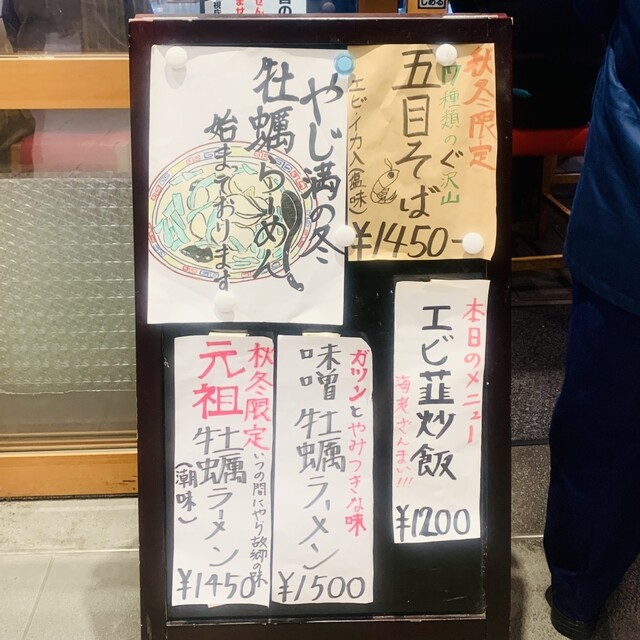 秋冬限定
17種類のぐ沢山
五目そば
エビイカ入(塩味)
¥1450-
やじ満の冬
牡蠣らーめん
始まっております
本日のメニュー
エビ韮炒飯
海老さんまい!!!
¥1200
ガツンとやみつきな味
味噌牡蠣ラーメン
¥1500
秋冬限定
いつの間にやら故郷の味
元祖
牡蠣ラーメン
(潮味)
¥1450
しめる